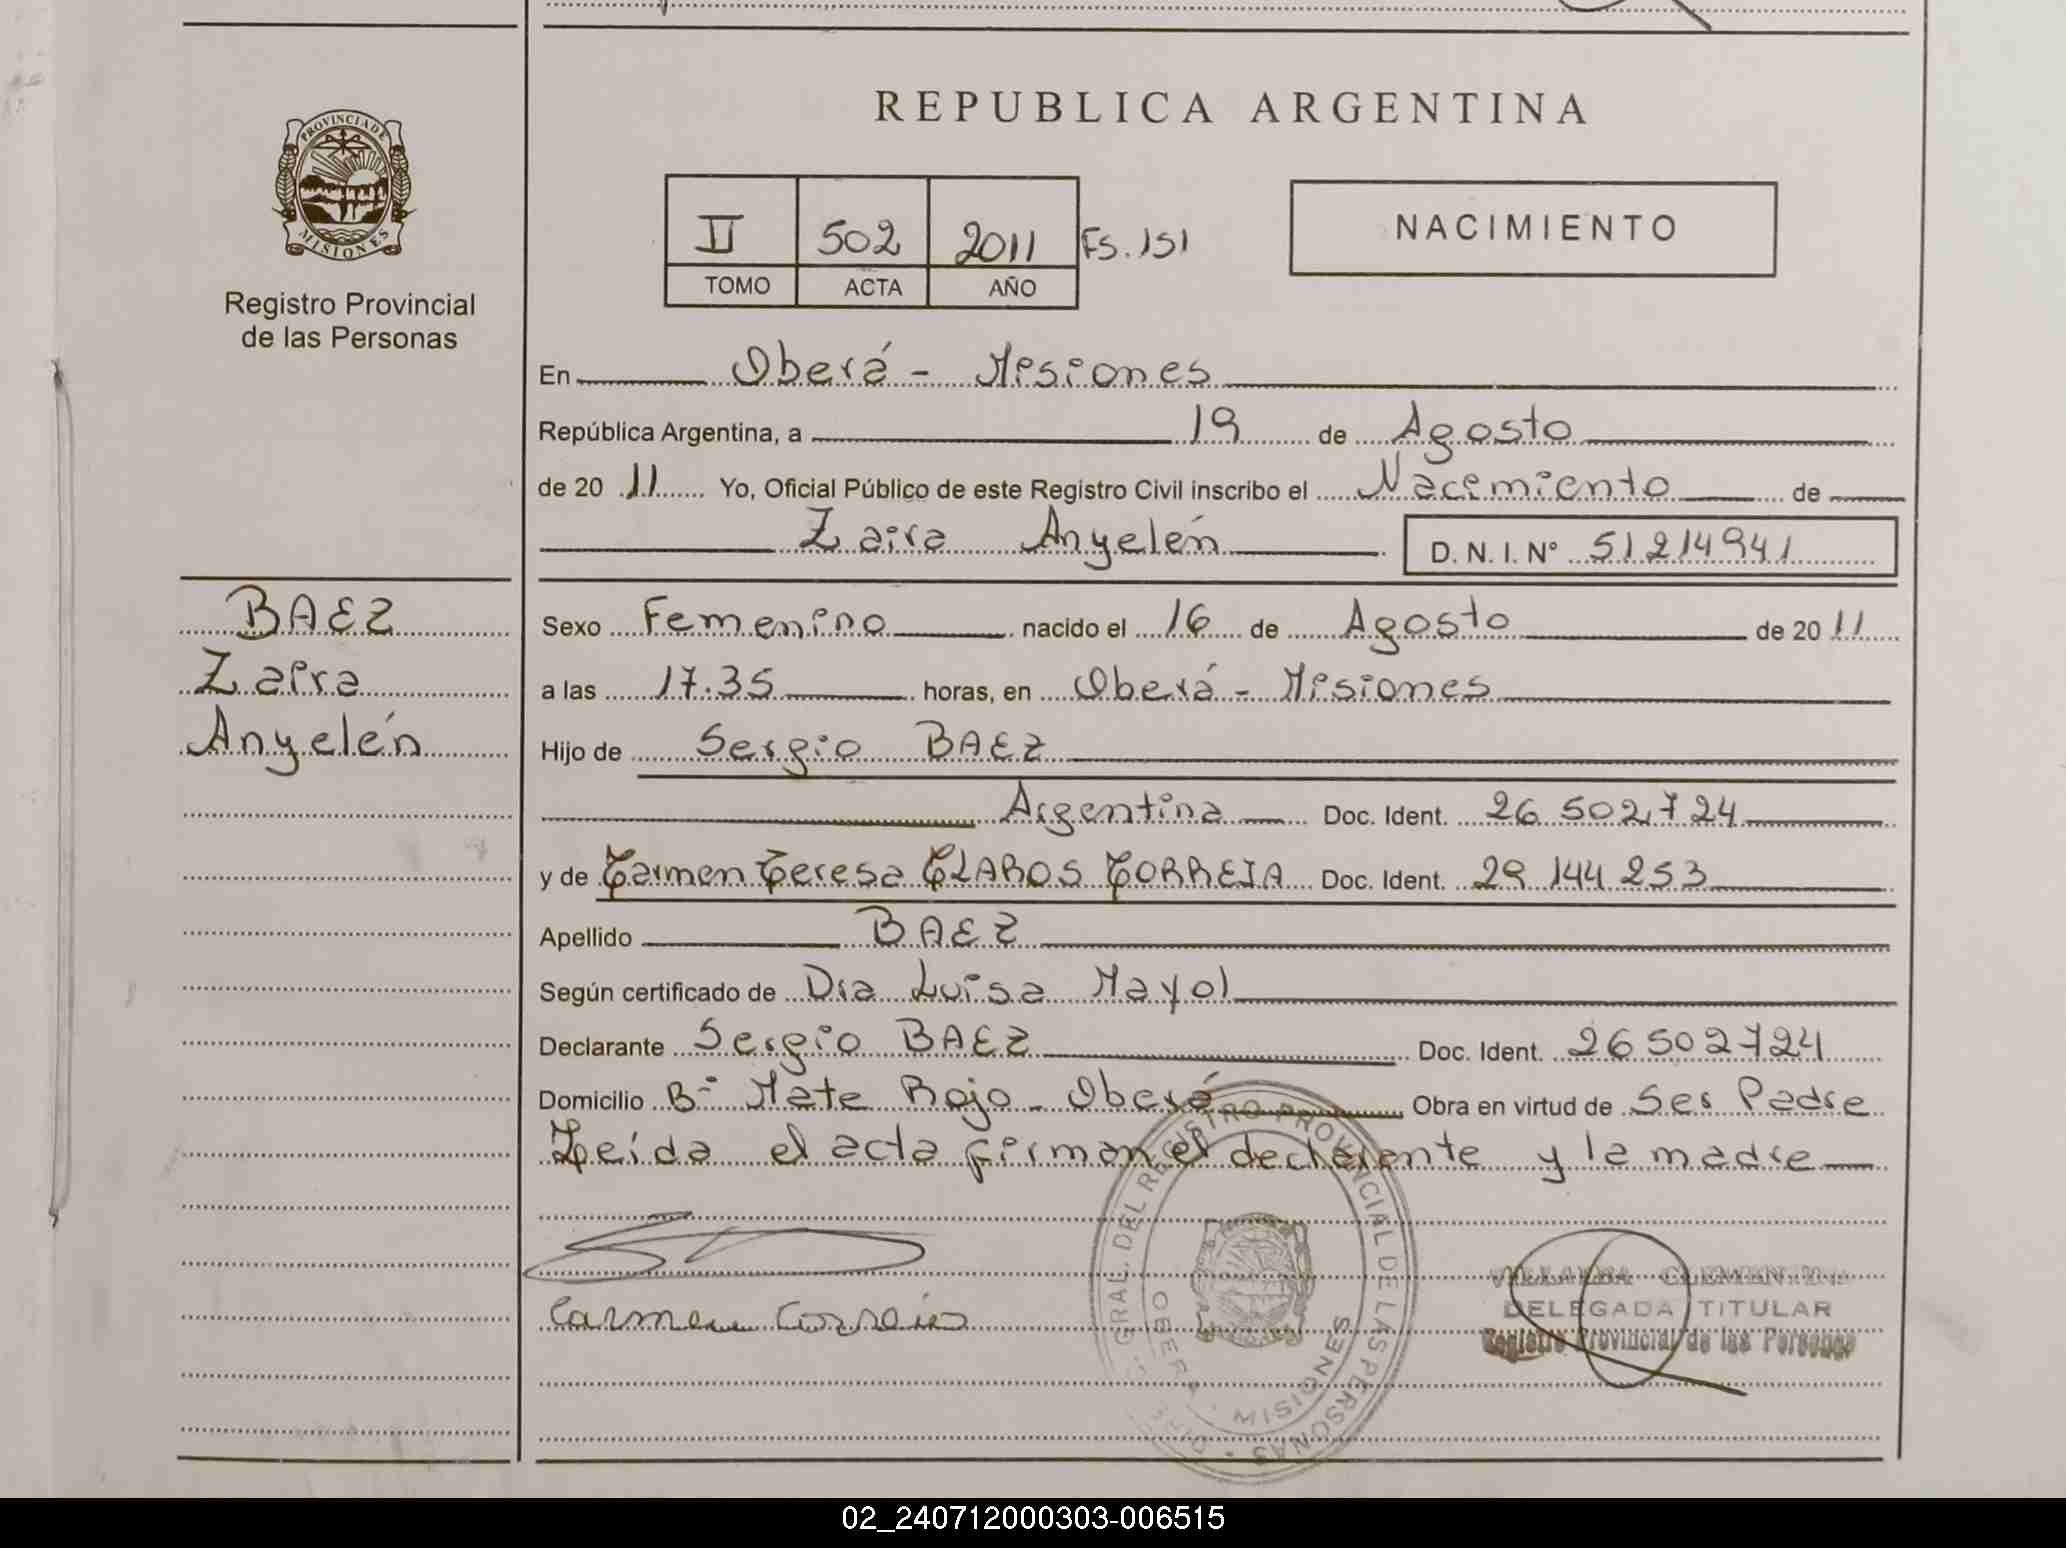 REPUBLICA ARGENTINA
PROVINCIA DE
MISIONES
Registro Provincial
de las Personas
II 502 2011 Fs. 151
TOMO ACTA AÑO
NACIMIENTO
En Oberá - Misiones
República Argentina, a 19 de Agosto
de 20 11 Yo, Oficial Público de este Registro Civil inscribo el Nacimiento de
Zaira Anyelén D. N. I. Nº 51214941
BAEZ
Zaira
Anyelén
Sexo Femenino nacido el 16 de Agosto de 20 11
a las 17.35 horas, en Oberá - Misiones
Hijo de Sergio BAEZ
Argentina Doc. Ident. 26 502.724
y de Carmen Teresa CLAROS CORREIA Doc. Ident. 29 144 253
Apellido BAEZ
Según certificado de Dra Luisa Mayol
Declarante Sergio BAEZ Doc. Ident. 26502724
Domicilio Bº Mate Rojo - Oberá Obra en virtud de Ser Padre
Leída el acta firman el declarante y la madre
Carmen Correia
GRAL. DEL REGISTRO PROVINCIAL DE LAS PERSONAS
OBERA
MISIONES
VILLALBA
DELEGADA TITULAR
Registro Provincial de las Personas
02_240712000303-006515